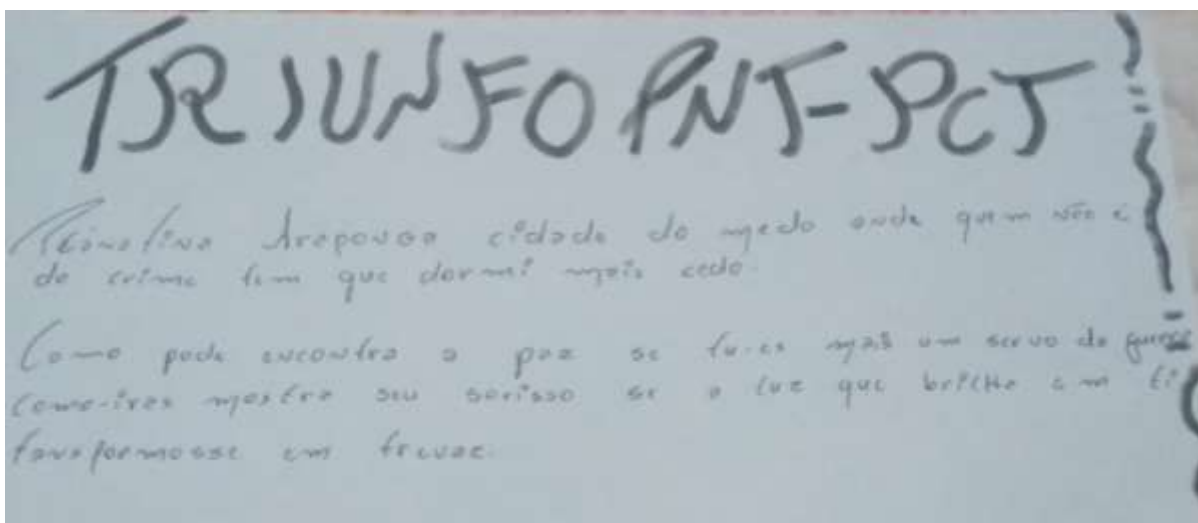 TRIUNFO PNT-PCT
Planaltina Arapouga cidade do medo onde quem não é
do crime tem que dormi mais cedo.
Como pode encontra a paz se tu-es mais um servo da guerra
como-iras mostra seu sorisso se a luz que brilha em ti
transformosse em trevas.